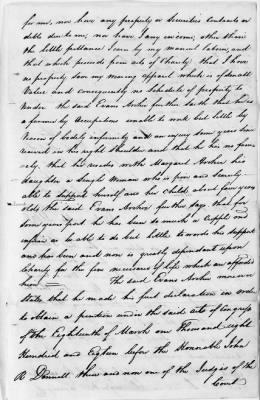 for me, nor have any property or securities contracts or
debts due to me; nor have I any income, other than
the little pittance I earn by my manual labour, and
that which proceeds from acts of Charity; that I have
no property save my wearing apparel which is of small
Value and consequently no schedule of property to
render the said Evan Archer further saith that he is
a farmer by Occupation unable to work but little by
reason of bodily infirmity and an injury some years since
received in his right shoulder and that he has no family
, that he resides with Margaret Archer his
daughter a single Woman who is poor and scarcely
able to support herself and her Child about four years
old the said Evan Archer further says that for
some years past he has been so much a cripple and
infirm as to able to do but little towards his support
and has been and now is greatly dependant upon
Charity for the few necessaries of life which are afforded
him The said Evan Archer moreover
states that he made his first declaration in order
to obtain a pension under the said act of Congress
of the Eighteenth of March one Thousand eight
Hundred and Eigteen before the Honorable John
R Donnell then and now one of the Judges of the
Court